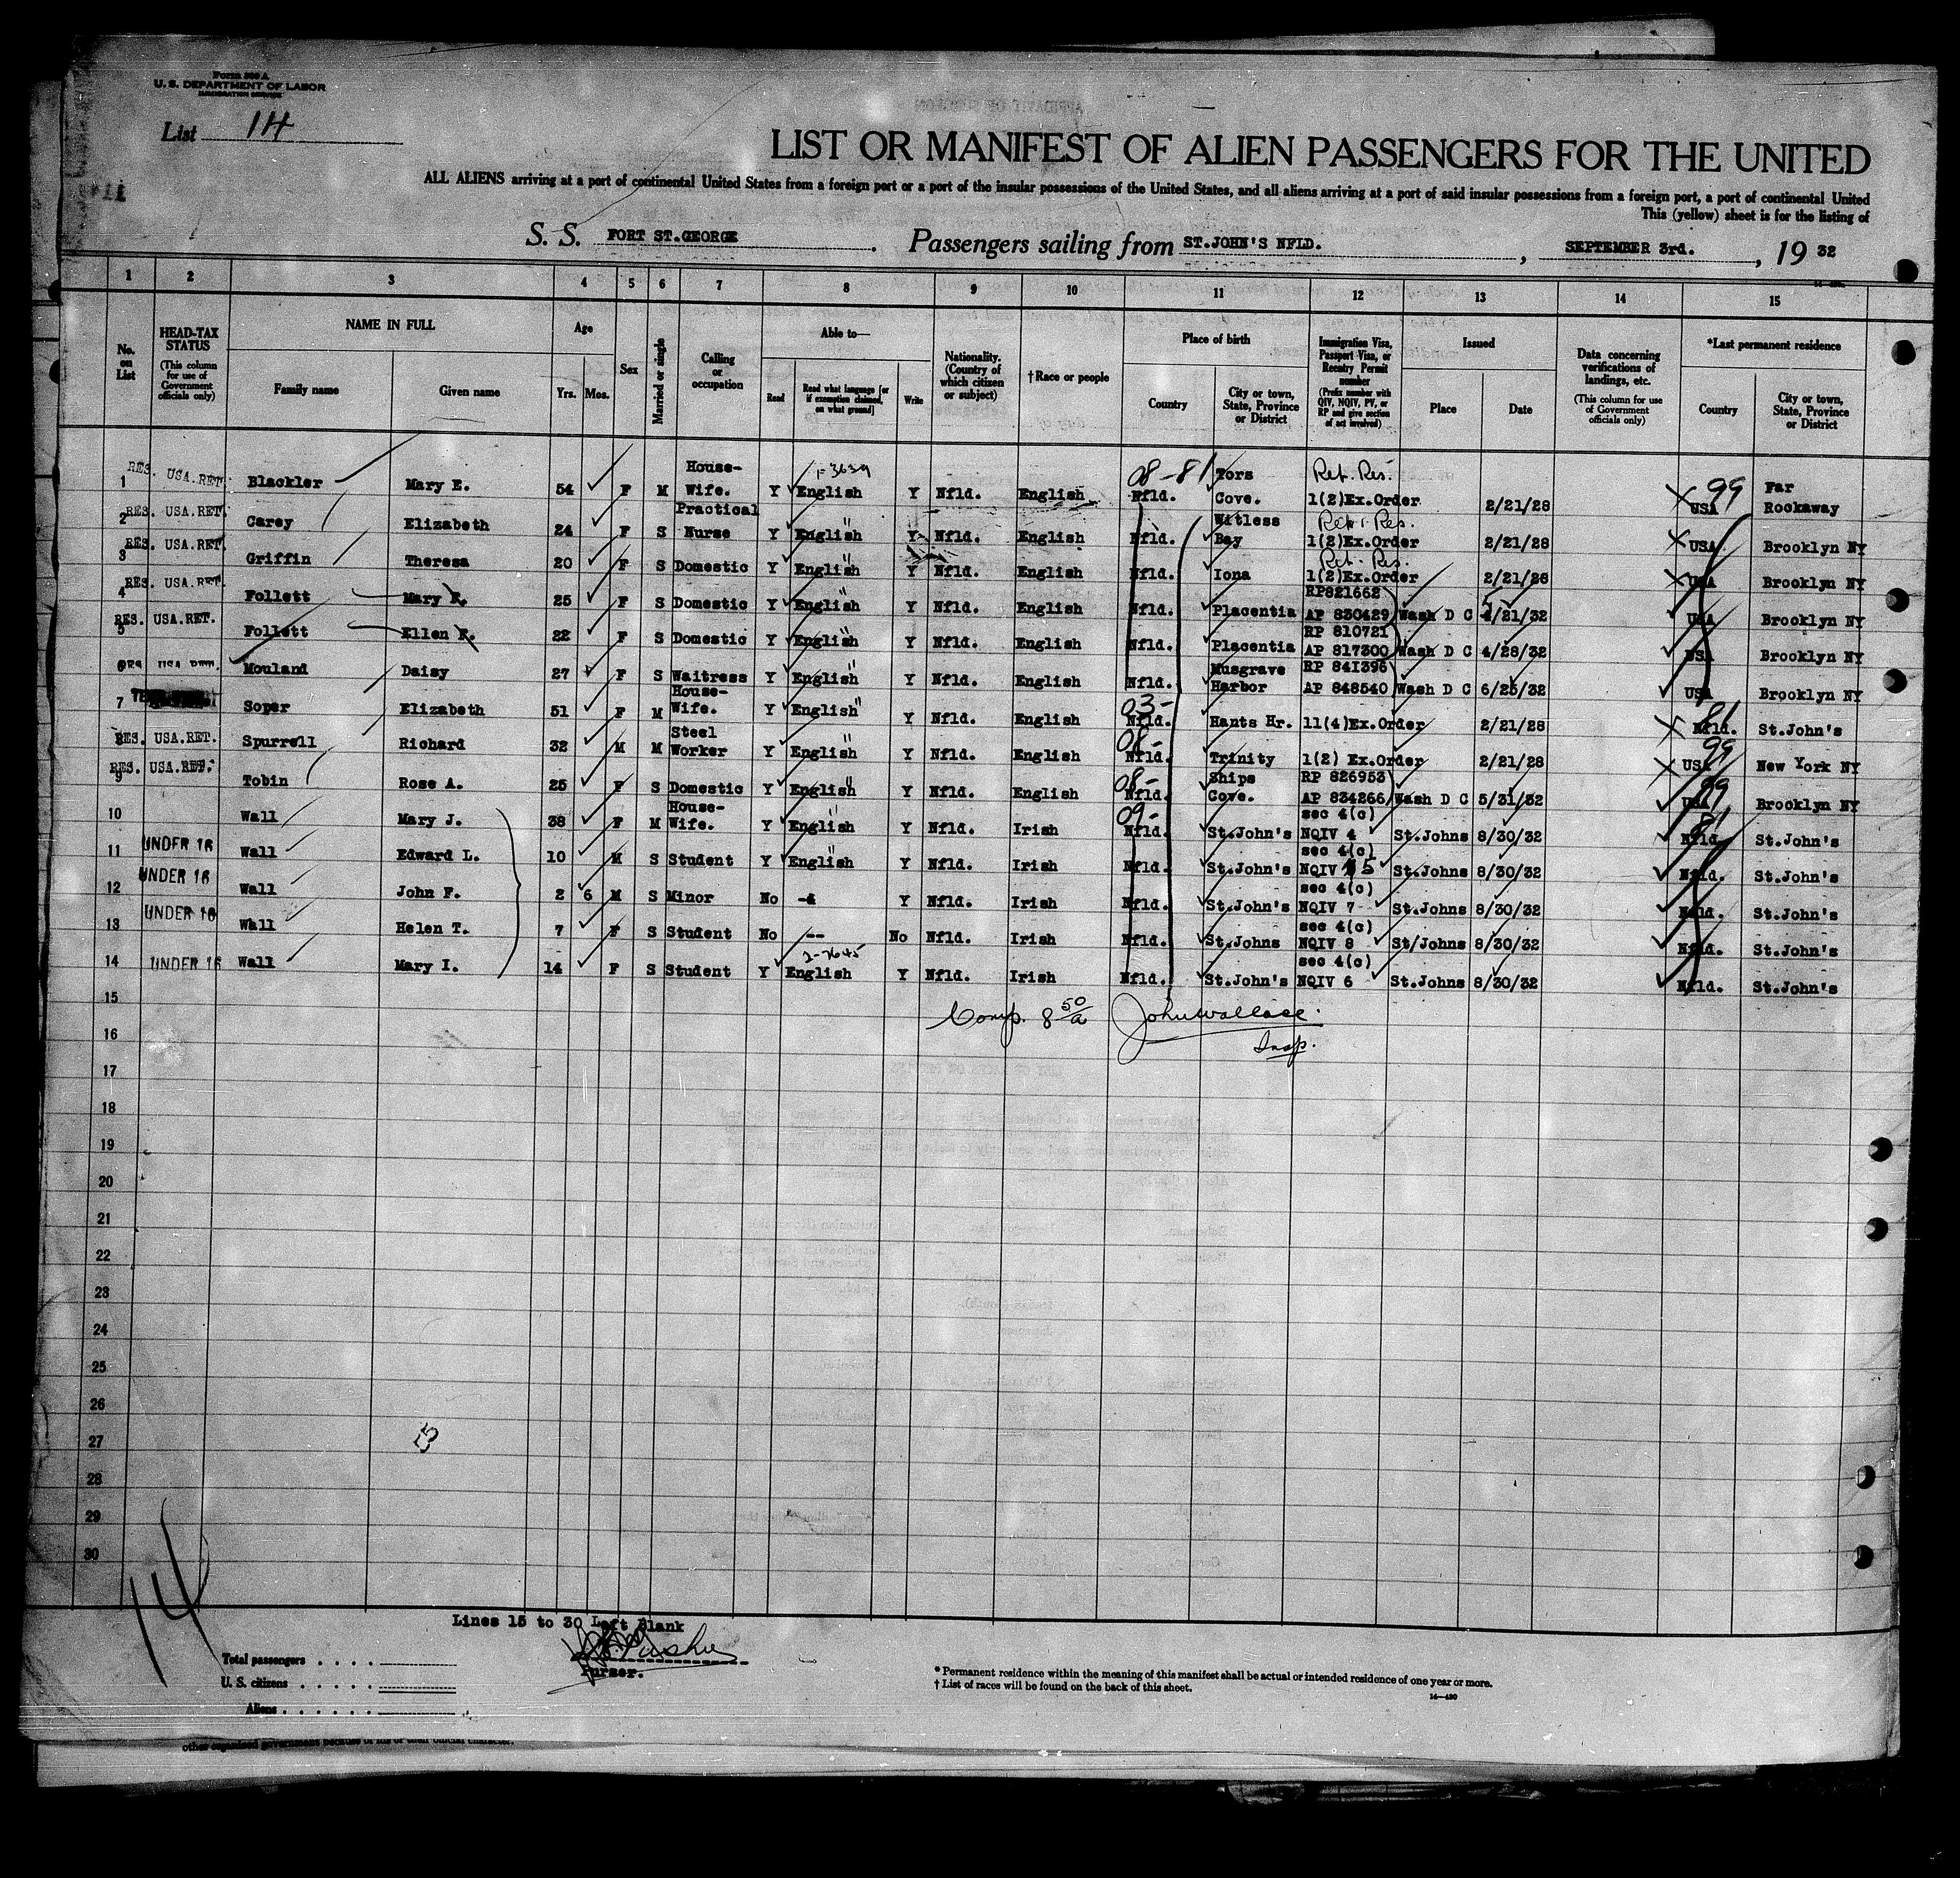 Form 500 A
U. S. DEPARTMENT OF LABOR
IMMIGRATION SERVICE
List 14
LIST OR MANIFEST OF ALIEN PASSENGERS FOR THE UNITED
ALL ALIENS arriving at a port of continental United States from a foreign port or a port of the insular possessions of the United States, and all aliens arriving at a port of said insular possessions from a foreign port, a port of continental United
This (yellow) sheet is for the listing of
S. S. FORT ST.GEORGE. Passengers sailing from ST.JOHN'S NFLD., SEPTEMBER 3rd., 19 32
1 2 3 4 5 6 7 8 9 10 11 12 13 14 15
No. on List
HEAD-TAX STATUS (This column for use of Government officials only)
NAME IN FULL
Family name Given name
Age
Yrs. Mos.
Sex
Married or single
Calling or occupation
Able to—
Read Read what language [or if exemption claimed, on what ground] Write
Nationality. (Country of which citizen or subject)
†Race or people
Place of birth
Country City or town, State, Province or District
Immigration Visa, Passport Visa, or Reentry Permit number (Prefix number with QIV, NQIV, PV, or RP and give section of act involved)
Issued
Place Date
Data concerning verifications of landings, etc. (This column for use of Government officials only)
*Last permanent residence
Country City or town, State, Province or District
1 RES. USA.RET. Blackler Mary E. 54 F M House-Wife. Y English 1-3639 Y Nfld. English 08-81 Nfld. Tors Cove. Ret. Res. 1(2)Ex.Order 2/21/28 99 USA Far Rockaway
2 RES. USA.RET. Carey Elizabeth 24 F S Practical Nurse Y English " Y Nfld. English Nfld. Witless Bay Ret. Res. 1(2)Ex.Order 2/21/28 USA Brooklyn NY
3 RES. USA.RET. Griffin Theresa 20 F S Domestic Y English " Y Nfld. English Nfld. Iona Ret. Res. 1(2)Ex.Order 2/21/28 USA Brooklyn NY
4 RES. USA.RET. Follett Mary F. 25 F S Domestic Y English " Y Nfld. English Nfld. Placentia RP821662 AP 830429 Wash D C 5/21/32 USA Brooklyn NY
5 RES. USA.RET. Follett Ellen F. 22 F S Domestic Y English " Y Nfld. English Nfld. Placentia RP 810721 AP 817300 Wash D C 4/28/32 USA Brooklyn NY
6 RES. USA RET. Mouland Daisy 27 F S Waitress Y English " Y Nfld. English Nfld. Musgrave Harbor RP 841396 AP 848540 Wash D C 6/25/32 USA Brooklyn NY
7 Soper Elizabeth 51 F M House-Wife. Y English " Y Nfld. English 03- Nfld. Hants Hr. 11(4)Ex.Order 2/21/28 81 Nfld. St.John's
8 RES. USA.RET. Spurrell Richard 32 M M Steel Worker Y English " Y Nfld. English 08- Nfld. Trinity 1(2) Ex.Order 2/21/28 99 USA New York NY
9 RES. USA.RET. Tobin Rose A. 25 F S Domestic Y English " Y Nfld. English 08- Nfld. Ships Cove. RP 826953 AP 834266 Wash D C 5/31/32 99 USA Brooklyn NY
10 Wall Mary J. 38 F M House-Wife. Y English " Y Nfld. Irish 09- Nfld. St.John's sec 4(c) NQIV 4 St.Johns 8/30/32 81 Nfld. St.John's
11 UNDER 16 Wall Edward L. 10 M S Student Y English " Y Nfld. Irish Nfld. St.John's sec 4(c) NQIV 5 St.Johns 8/30/32 Nfld. St.John's
12 UNDER 16 Wall John F. 2 6 M S Minor No Y Nfld. Irish Nfld. St.John's sec 4(c) NQIV 7 St.Johns 8/30/32 Nfld. St.John's
13 UNDER 16 Wall Helen T. 7 F S Student No -- No Nfld. Irish Nfld. St.Johns sec 4(c) NQIV 8 St/Johns 8/30/32 Nfld. St.John's
14 UNDER 16 Wall Mary I. 14 F S Student Y English 2-7645 Y Nfld. Irish Nfld. St.John's sec 4(c) NQIV 6 St.Johns 8/30/32 Nfld. St.John's
15
Comp. 8 50/a John Wallace.
16
Insp.
17
18
19
20
21
22
23
24
25
26
27
28
29
30
14
Lines 15 to 30 Left Blank
Purser.
Total passengers . . . .
U. S. citizens . . . . .
Aliens . . . . . .
* Permanent residence within the meaning of this manifest shall be actual or intended residence of one year or more.
† List of races will be found on the back of this sheet.
14—430
other organized government because of his or their official character.